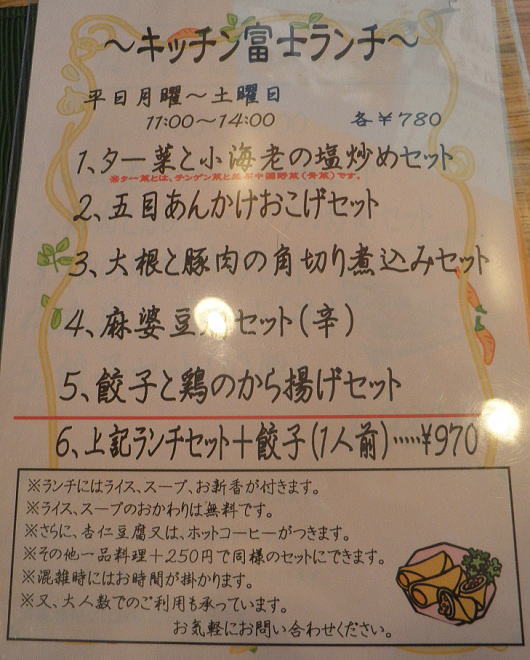 ～キッチン富士ランチ～
平日月曜～土曜日
11:00～14:00　各￥780
1、ター菜と小海老の塩炒めセット
※ター菜とは、チンゲン菜と並ぶ中国野菜(青菜)です。
2、五目あんかけおこげセット
3、大根と豚肉の角切り煮込みセット
4、麻婆豆腐セット(辛)
5、餃子と鶏のから揚げセット
6、上記ランチセット＋餃子(1人前)……¥970
※ランチにはライス、スープ、お新香が付きます。
※ライス、スープのおかわりは無料です。
※さらに、杏仁豆腐又は、ホットコーヒーがつきます。
※その他一品料理＋250円で同様のセットにできます。
※混雑時にはお時間が掛かります。
※又、大人数でのご利用も承っています。
お気軽にお問い合わせください。